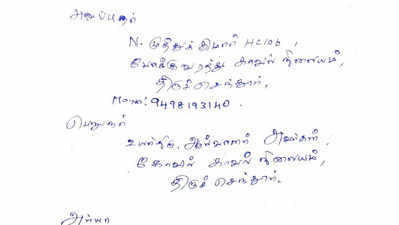 அனுப்புதல்
N. முத்துக்குமார் HC106,
போக்குவரத்து காவல் நிலையம்,
திருச்செந்தூர்.
9498193140.
பெறுநர்
உயர்திரு. ஆய்வாளர் அவர்கள்,
கோவில் காவல் நிலையம்,
திருச்செந்தூர்.
அய்யா